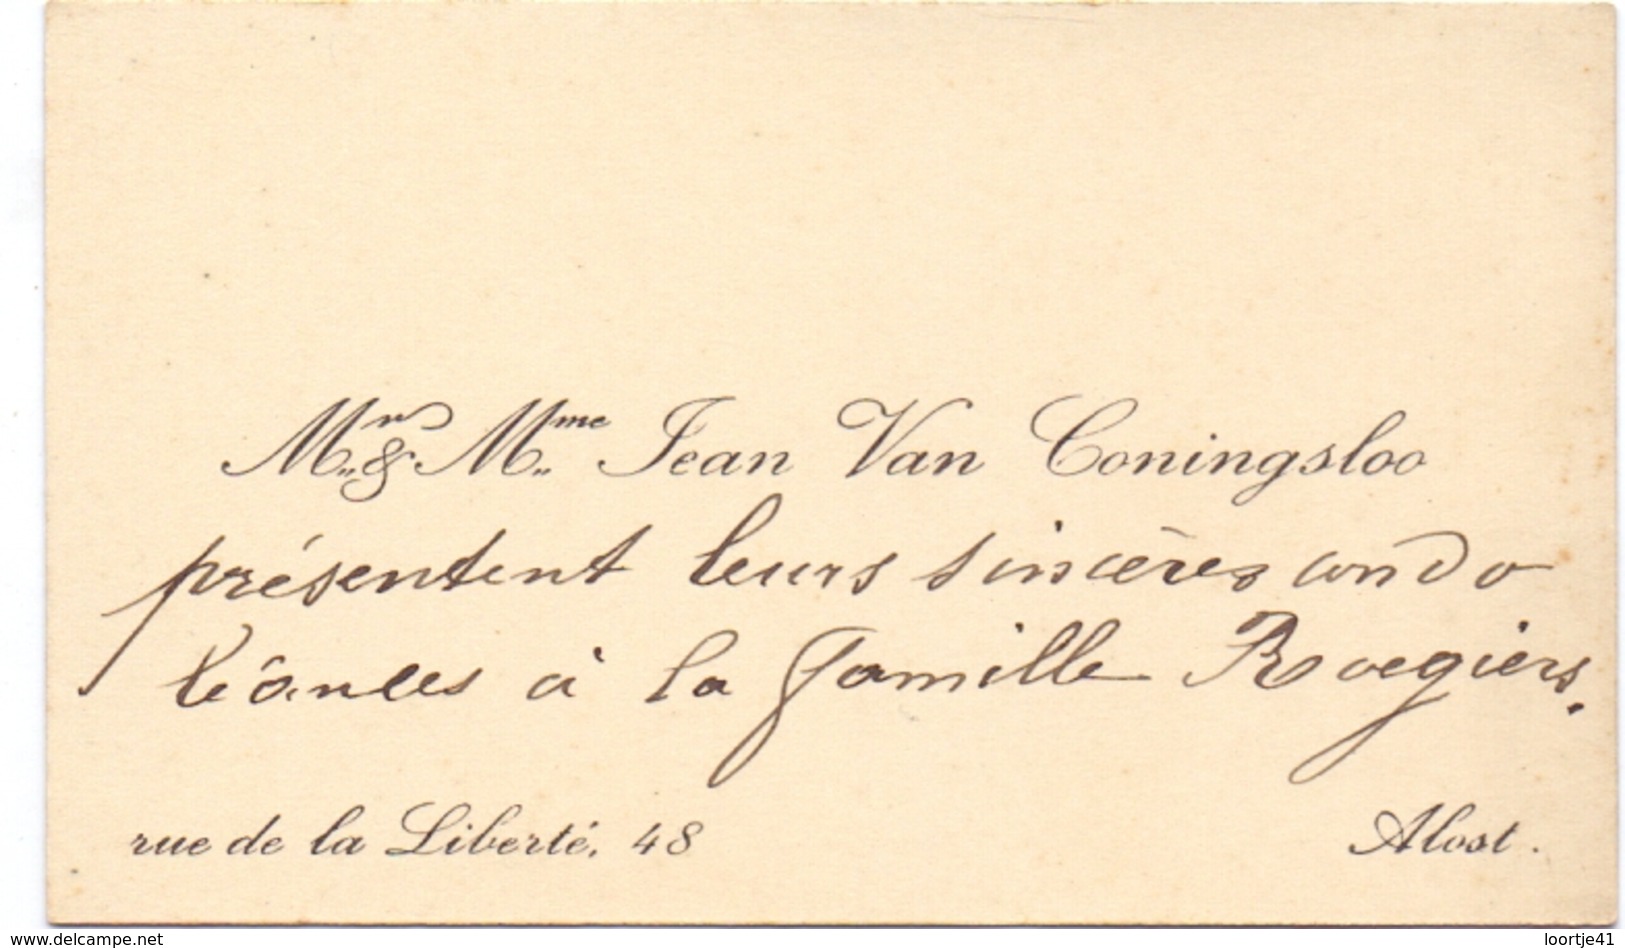 Mr. & Mme. Jean Van Coningsloo
présentent leurs sincères condo
léances à la famille Roegiers.
rue de la Liberté, 48 Alost.
www.delcampe.net loortje41